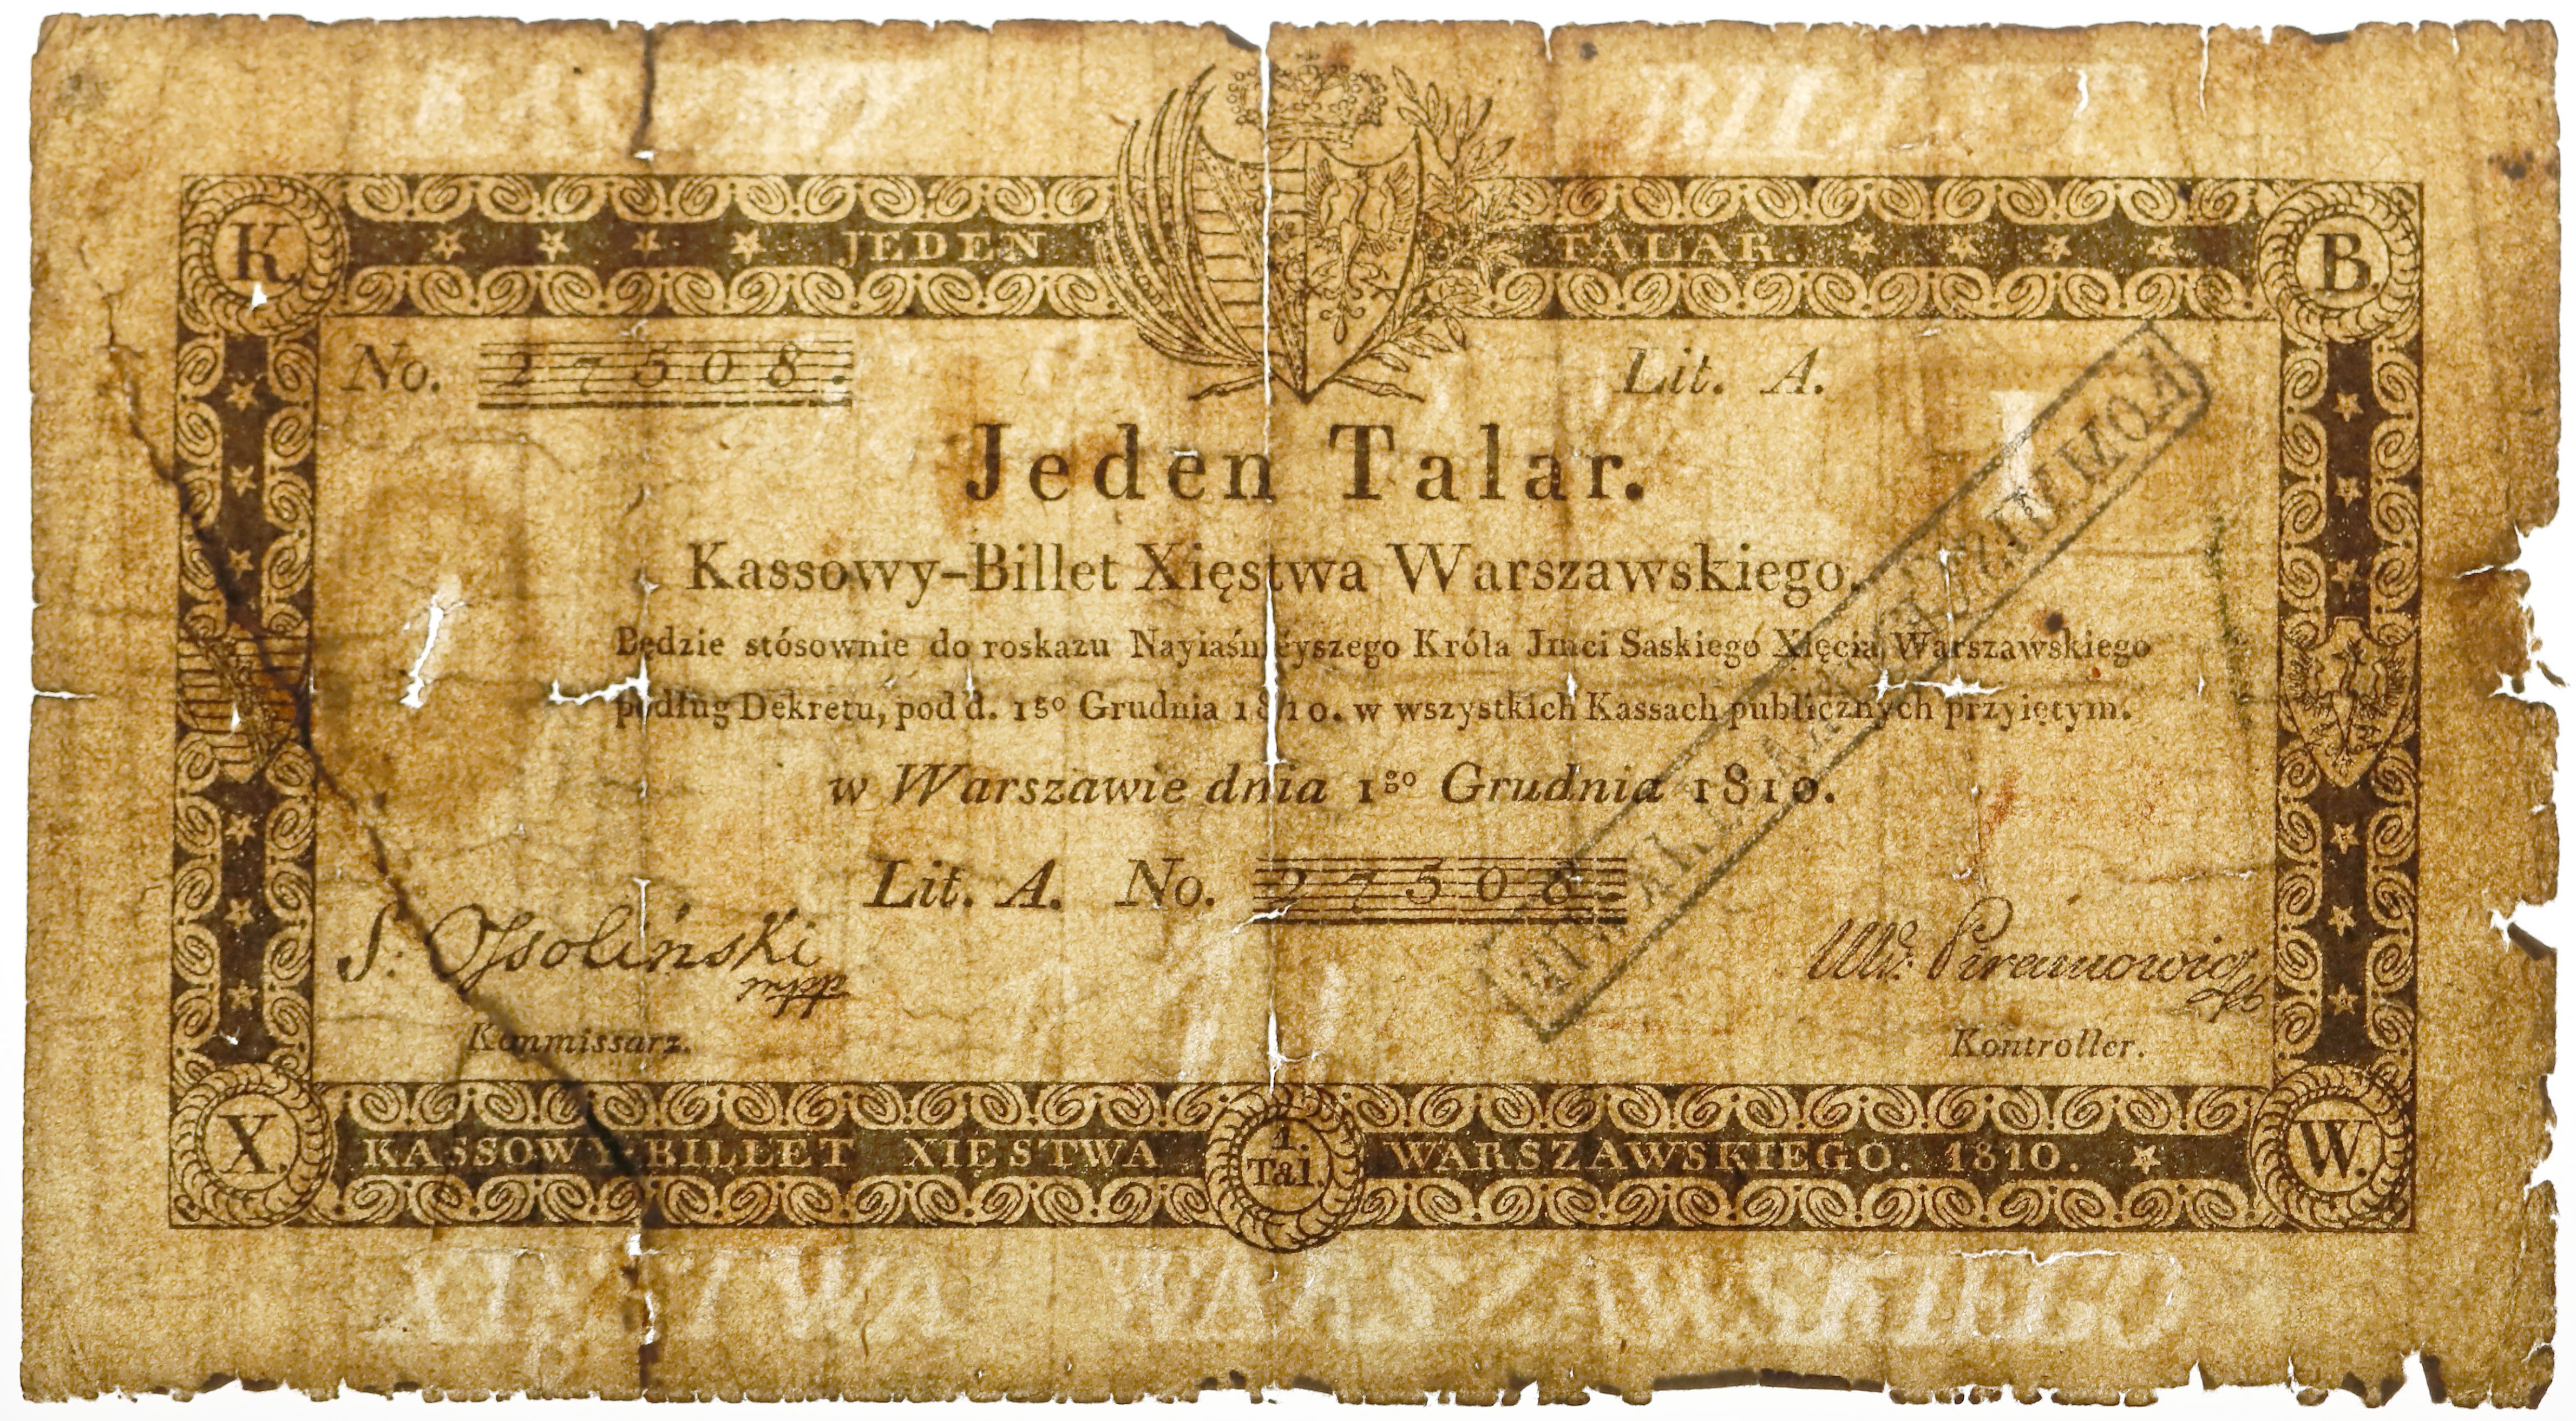 BILLET
K. JEDEN TALAR. B.
No. 27508. Lit. A.
Jeden Talar.
Kassowy-Billet Xięstwa Warszawskiego.
Będzie stósownie do roskazu Nayiaśnieyszego Króla Jmci Saskiego Xięcia Warszawskiego
podług Dekretu, pod d. 1go Grudnia 1810. w wszystkich Kassach publicznych przyiętym.
w Warszawie dnia 1go Grudnia 1810.
Lit. A. No. 27508.
J: Ossoliński mpp
Kommissarz. Kontroller.
X. KASSOWY-BILLET XIĘSTWA 1. Tal. WARSZAWSKIEGO. 1810. W.
XIĘSTWA WARSZAWSKIEGO